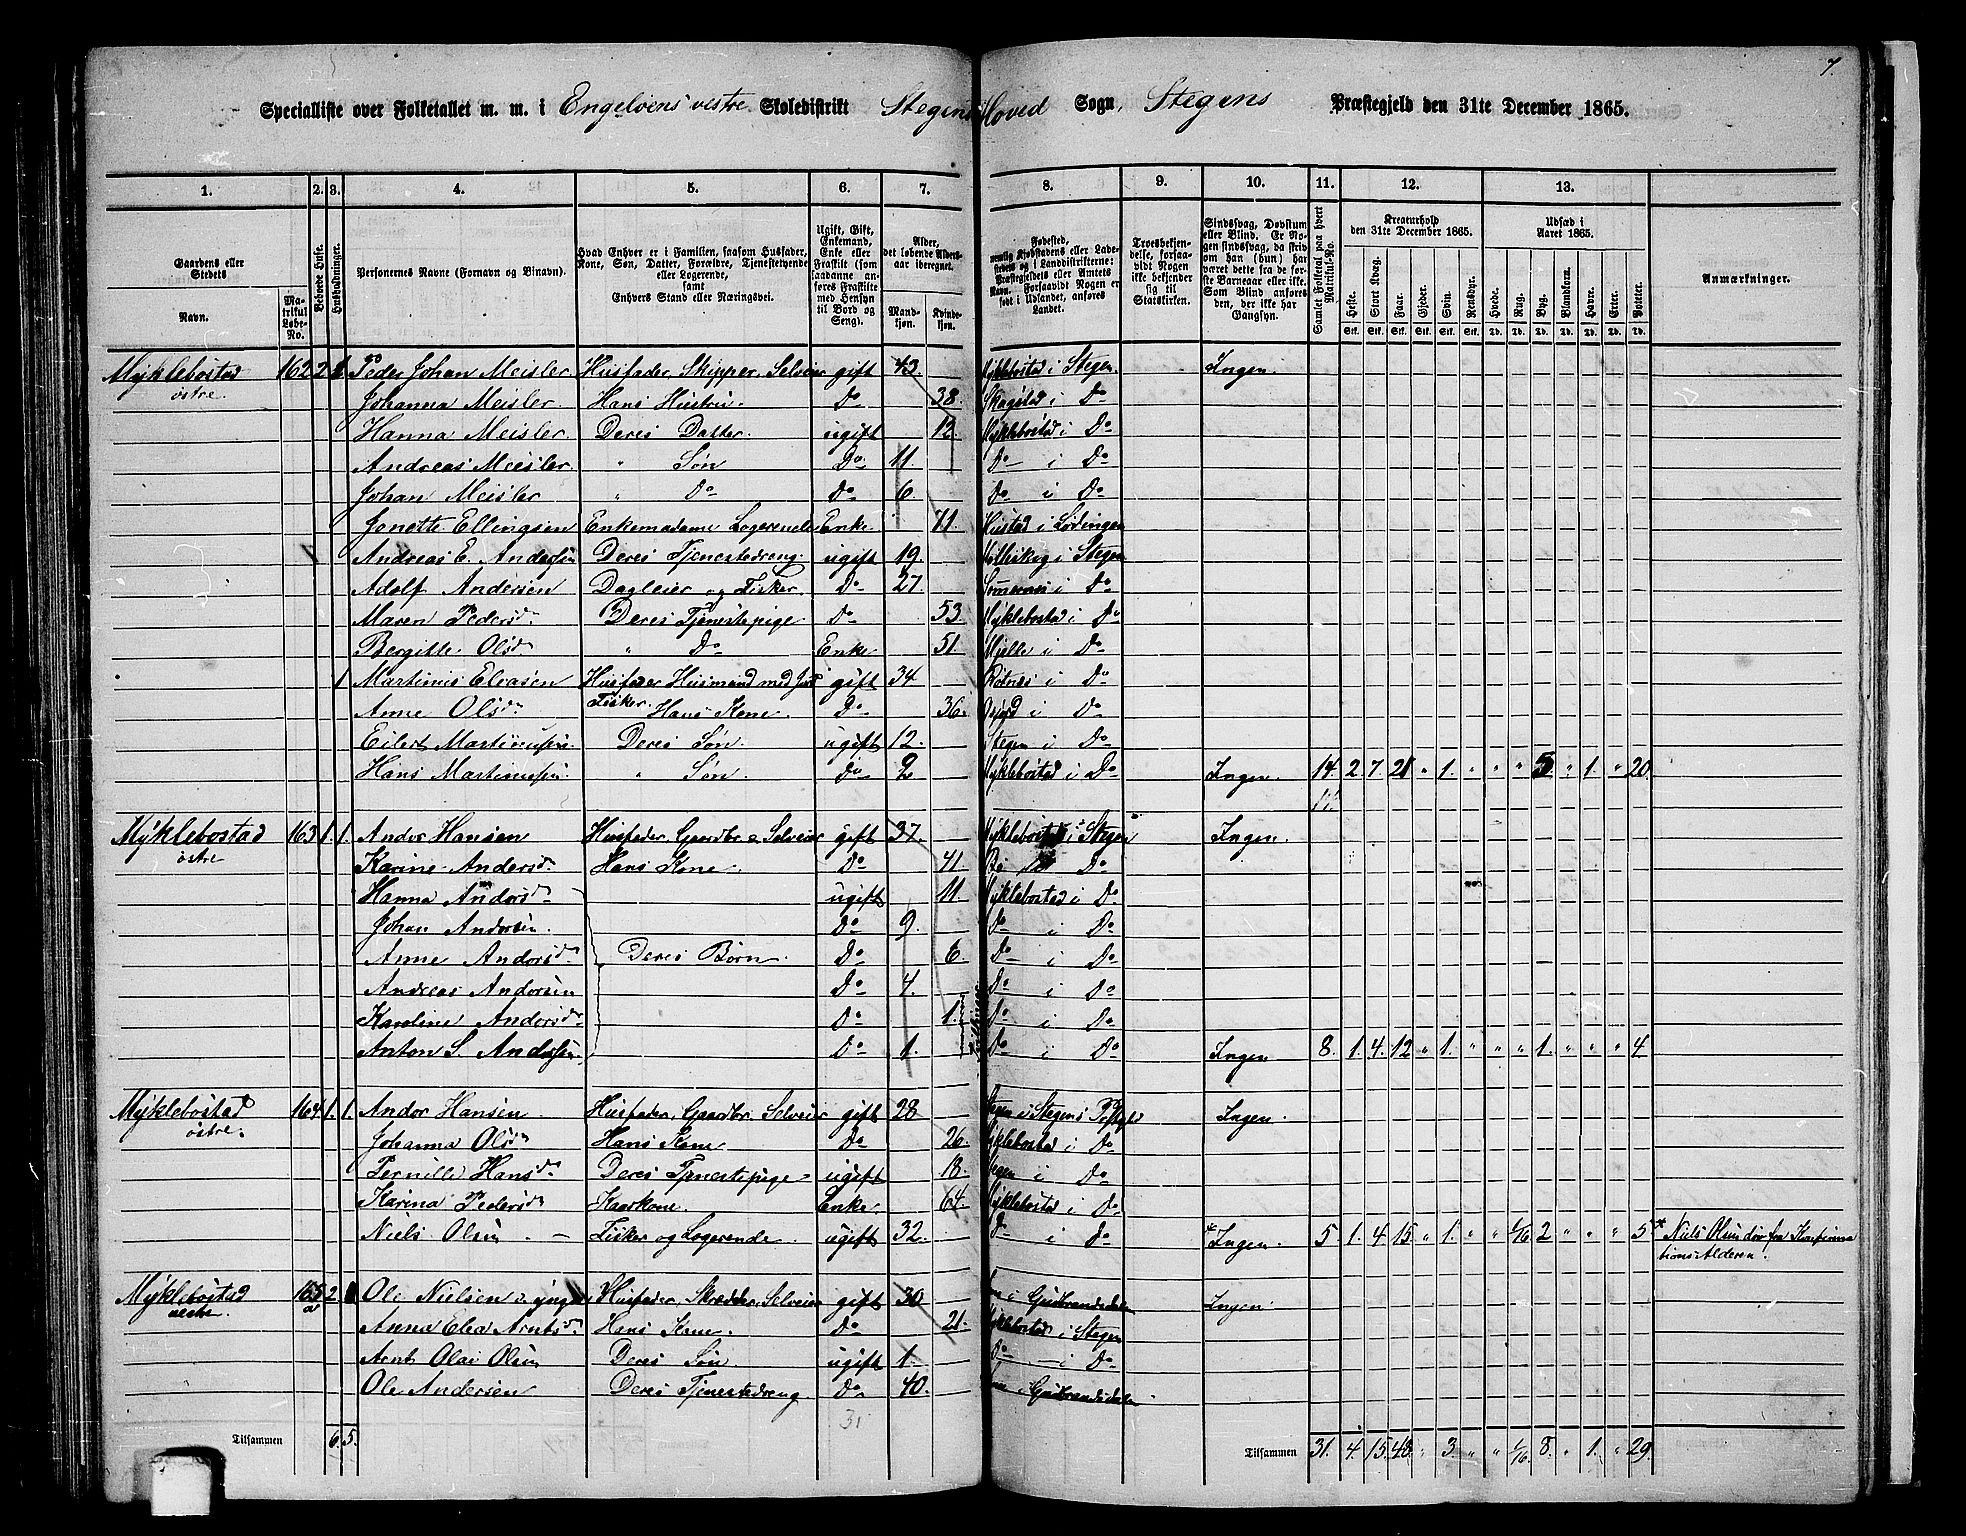 7.
Specialliste over Folketallet m. m. i Engeløens vestre Skoledistrikt Stegens Hoved Sogn, Stegens Præstegjeld den 31te December 1865.
1. 2. 3. 4. 5. 6. 7. 8. 9. 10. 11. 12. 13.
Gaardens eller Stedets Navn. Matrikul Løbe-No. Beboede Huse. Husholdninger. Personernes Navne (Fornavn og Binavn). Hvad Enhver er i Familien, saasom Husfader, Kone, Søn, Datter, Forældre, Tjenestetyende eller Logerende, samt Enhvers Stand eller Næringsvei. Ugift, Gift, Enkemand, Enke eller Fraskilt (som saadanne anføres Fraskilte med Hensyn til Bord og Seng). Alder, det løbende Aldersaar iberegnet. Mandkjøn. Kvindekjøn.
Fødested, nemlig Kjøbstadens eller Ladestedets og i Landdistrikterne: Præstegjeldets eller Amtets Navn. Forsaavidt Nogen er født i Udlandet, anføres Landet. Troesbekjendelse, forsaavidt Nogen ikke bekjender sig til Statskirken. Sindssvag, Døvstum eller Blind. Er Nogen sindssvag, da skrives om han (hun) har været dette fra de første Barneaar eller ikke. Som Blind anføres den, der ikke har Gangsyn. Samlet Folketal paa hvert Matrikul-No. Kreaturhold den 31te December 1865. Heste. Stort Kvæg. Faar. Gjeder. Svin. Rensdyr. Udsæd i Aaret 1865. Hvede. Rug. Byg. Blandkorn. Havre. Erter. Poteter. Anmærkninger.
Myklebostad østre. 162 2 1 Peder Johan Meisler Husfader, Skipper, Selveier gift 43. Myklebostad i Stegen. Ingen.
Johanna Meisler. Hans Hustru. Do 38. Skagstad i Do
Hanna Meisler. Deres Datter. ugift 12. Myklebostad i Do
Andreas Meisler. " Søn Do 11. Do i Do
Johan Meisler " Do Do 6. Do i Do
Janette Ellingsen Enkemadame Logerende Enke. 71. Hustad i Lødingen
Andreas E. Andersen Deres Tjenestedreng. ugift 19. i Stegen
Adolf Andersen Dagleier og Fisker. Do 27. i Do
Maren Pedersd. Deres Tjenestepige Do 53. Myklebostad i Do
Bergitte Olsd. " Do Enke 51. Mjelle i Do
1 Martinus Eliasen Husfader Husmand med Jord gift 34 i Do
Anne Olsd. Fisker. Hans Kone. Do 36. i Do
Eilert Martinussen. Deres Søn. ugift 12. Stegen i Do
Hans Martinussen. " Søn Do 2 Myklebostad i Do Ingen. 14. 2. 7. 21 " 1. " " " 5 " 1. " 20.
Myklebostad østre 163 1. 1. Andor Hansen Husfader, Gaardbr. & Selveier gift 37. Myklebostad i Stegen Ingen.
Karine Andersd. Hans Kone. Do 41. Bø Do
Hanna Andorsd. ugift 11. Myklebostad i Do
Johan Andorsen. Do 9. Do i Do
Anne Andorsd. Deres Børn. Do 6. Do i Do
Andreas Andorsen Do 4. Do i Do
Karoline Andorsd. Do 1. Do i Do
Anton S. Andorsen Do 1. Do i Do Ingen 8. 1. 4. 12 " 1. " " " 1. " " " 4
Myklebostad østre. 164 1. 1. Andor Hansen. Husfader, Gaardbr. Selveier gift 28 Stegen i Stegens Ingen.
Johanna Olsd. Hans Kone Do 26. Myklebostad i Do
Pernille Hansd. Deres Tjenestepige ugift 18. Stegen i Do
Karina Pedersd. Kaarkone. Enke 64. Myklebostad i Do
Niels Olsen Fisker og Logerende. ugift 32. Do i Do * Ingen. 5 1. 4 15 " 1. " " 1/16 2 " " " 5 * Niels Olsen døv fra Konfirmationsalderen.
Myklebostad vestre. 165 a 2. 1 Ole Nielsen d. yngre Husfader, Skrædder, Selveier gift 30 i Gudbrandsdalen Ingen.
Anna Elea Arntsd. Hans Kone. Do 21. Myklebostad i Stegen
Arnt Olai Olsen Deres Søn. ugift 1. Do i Do
Ole Andersen Deres Tjenestedreng Do 40. i Gudbrandsdalen.
31
Tilsammen 6. 5. Tilsammen 31. 4. 15. 48 " 3. " " 1/16 8. " 1. " 29.